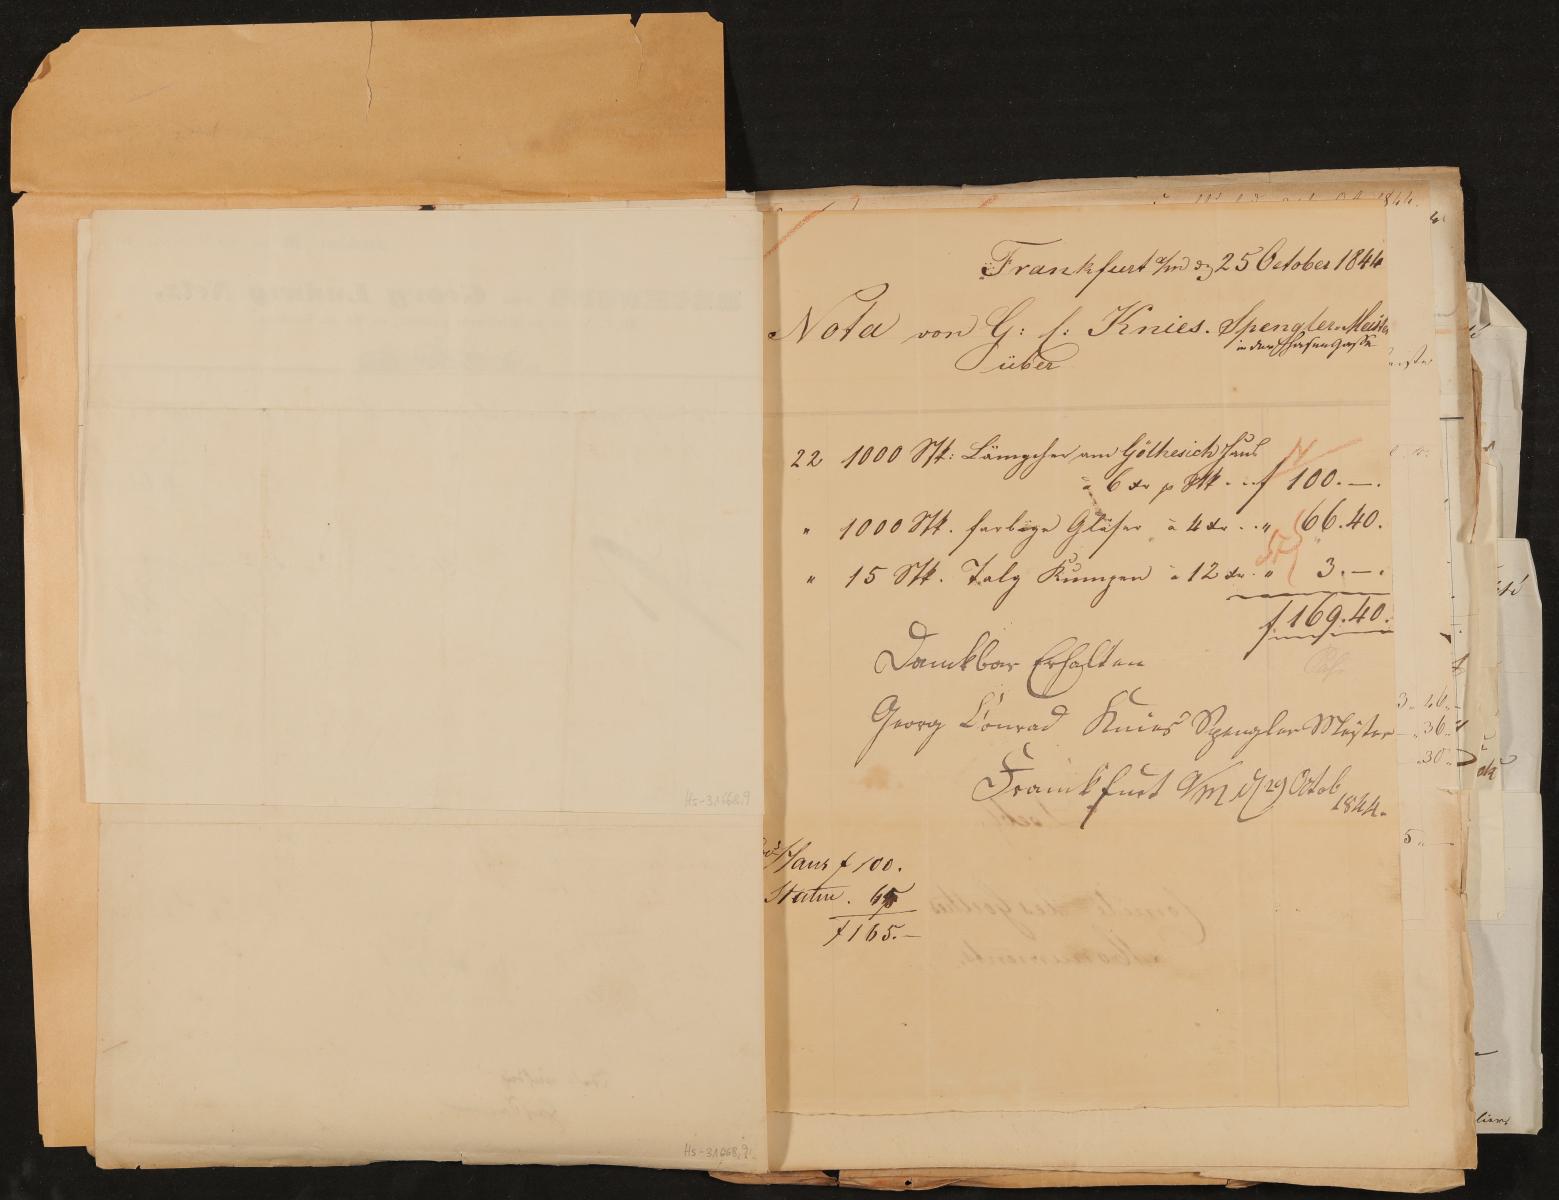 Frankfurt a/m d 25 October 1844
Nota von G: C: Knies. Spengler Meister
in der Hasengasse
über
22 1000 Stk: Lämpcher am Götheschen Haus
à 6 xr p Stk. . f 100.—.
" 1000 Stk. farbige Gläser à 4 xr . . " 66.40.
" 15 Stk. Talg Kumpen à 12 xr. " 3.—.
f. 169.40.
Danckbar Erhalten
Georg Conrad Knies Spengler Meister
Franckfurt a/M d 29 Octob
1844.
Haus f 100.
Statue. 65
f 165.—
Hs-31668,9
Hs-31668,9